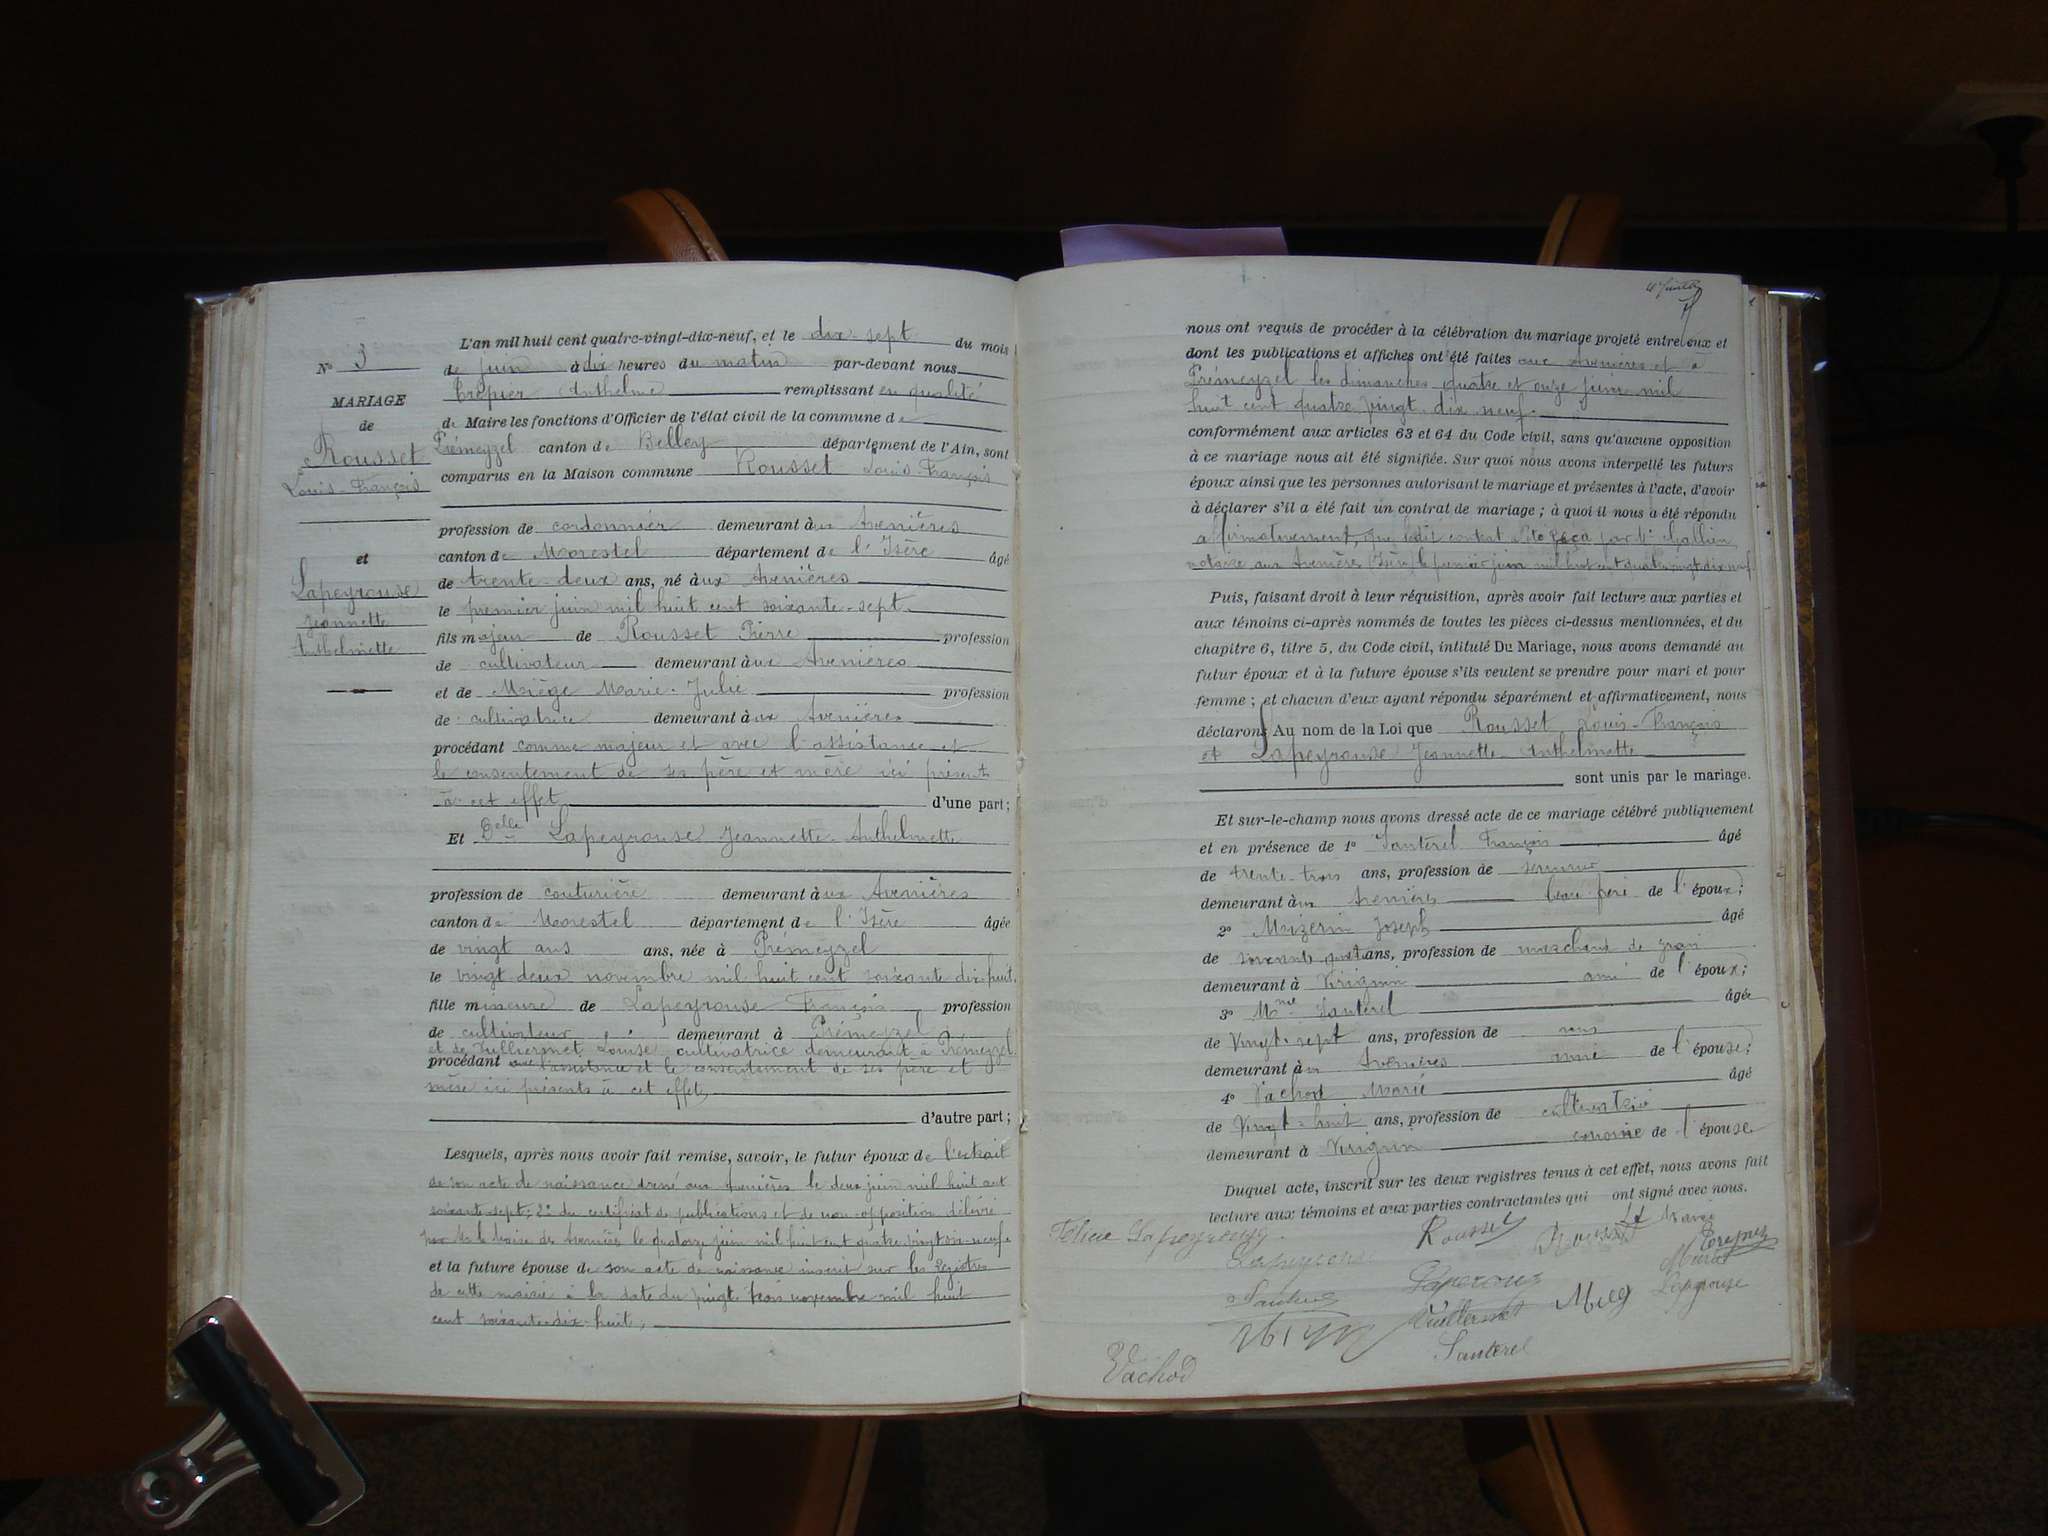 N° 3
MARIAGE
de
Rousset
Louis-François
et
Lapeyrouse
Jeannette
Anthelmette
L'an mil huit cent quatre-vingt-dix-neuf, et le dix-sept du mois
de juin à dix heures du matin par-devant nous
Crépier Anthelme remplissant en qualité
de Maire les fonctions d'Officier de l'état civil de la commune de
Prémeyzel canton de Belley département de l'Ain, sont
comparus en la Maison commune Rousset Louis-François
profession de cordonnier demeurant aux Avenières
canton de Morestel département de l'Isère âgé
de trente-deux ans, né aux Avenières
le premier juin mil huit cent soixante-sept
fils majeur de Rousset Pierre profession
de cultivateur demeurant aux Avenières
et de Miège Marie-Julie profession
de cultivatrice demeurant aux Avenières
procédant comme majeur et avec l'assistance et
le consentement de ses père et mère ici présents
à cet effet d'une part;
Et Delle Lapeyrouse Jeannette-Anthelmette
profession de couturière demeurant aux Avenières
canton de Morestel département de l'Isère âgée
de vingt ans ans, née à Prémeyzel
le vingt-deux novembre mil huit cent soixante dix-huit
fille mineure de Lapeyrouse François profession
de cultivateur demeurant à Prémeyzel
et de Vulliermet Louise cultivatrice demeurant à Prémeyzel
procédant avec l'assistance et le consentement de ses père et
mère ici présents à cet effet
d'autre part;
Lesquels, après nous avoir fait remise, savoir, le futur époux de l'extrait
de son acte de naissance dressé aux Avenières le deux juin mil huit cent
soixante-sept; 2° du certificat de publications et de non-opposition délivré
par Mr le Maire des Avenières le quatorze juin mil huit cent quatre-vingt-dix-neuf
et la future épouse de son acte de naissance inscrit sur les registres
de cette mairie à la date du vingt-trois novembre mil huit
cent soixante-dix-huit,
nous ont requis de procéder à la célébration du mariage projeté entre eux et
dont les publications et affiches ont été faites aux Avenières et à
Prémeyzel les dimanches quatre et onze juin mil
huit cent quatre vingt dix neuf
conformément aux articles 63 et 64 du Code civil, sans qu'aucune opposition
à ce mariage nous ait été signifiée. Sur quoi nous avons interpellé les futurs
époux ainsi que les personnes autorisant le mariage et présentes à l'acte, d'avoir
à déclarer s'il a été fait un contrat de mariage; à quoi il nous a été répondu
affirmativement, que ledit contrat a été reçu par Me Gallien
notaire aux Avenières (Isère) le premier juin mil huit cent quatre vingt dix neuf
Puis, faisant droit à leur réquisition, après avoir fait lecture aux parties et
aux témoins ci-après nommés de toutes les pièces ci-dessus mentionnées, et du
chapitre 6, titre 5, du Code civil, intitulé Du Mariage, nous avons demandé au
futur époux et à la future épouse s'ils veulent se prendre pour mari et pour
femme; et chacun d'eux ayant répondu séparément et affirmativement, nous
déclarons Au nom de la Loi que Rousset Louis-François
et Lapeyrouse Jeannette-Anthelmette
sont unis par le mariage.
Et sur-le-champ nous avons dressé acte de ce mariage célébré publiquement
et en présence de 1° Santerel François âgé
de trente-trois ans, profession de serrurier
demeurant aux Avenières beau-frère de l'époux;
2° Mizerin Joseph âgé
de ans, profession de marchand de grain
demeurant à Virignin ami de l'époux;
3° Mme Santerel âgée
de Vingt-sept ans, profession de sans
demeurant aux Avenières amie de l'épouse;
4° Vachod Marie âgé
de Vingt-huit ans, profession de cultivatrice
demeurant à Virignin cousine de l'épouse
Duquel acte, inscrit sur les deux registres tenus à cet effet, nous avons fait
lecture aux témoins et aux parties contractantes qui ont signé avec nous.
Félicie Lapeyrouse Rousset
Crépier
Santerel
Vachod